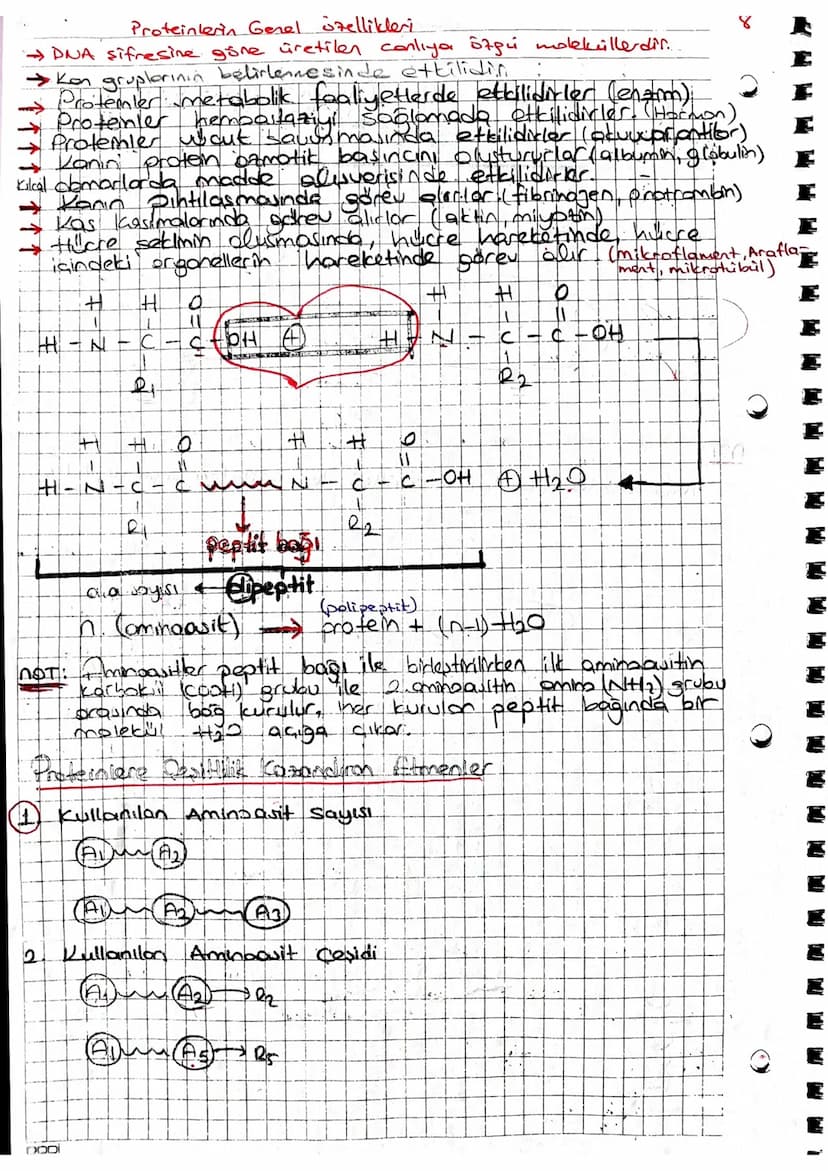 Proteinlerin Genel özellikleri
8
→ DNA şifresine göre üretilen canlıya özgü moleküllerdir.
→ Kan gruplarının belirlenmesinde etkilidir.
→ Proteinler metabolik faaliyetlerde etkilidirler (enzim)
→ Proteinler hemostaziyi sağlamada etkilidirler. (Hormon)
→ Proteinler vücut savunmasında etkilidirler
→ Kanın protein ozmotik basıncını oluştururlar (albumin, globulin)
Kılcal damarlarda madde alışverişinde etkilidirler.
→ Kanın Pıhtılaşmasında görev alırlar. (fibrinojen, protrombin)
→ Kas kasılmalarında görev alırlar (aktin, miyozin)
→ Hücre şeklinin oluşmasında, hücre hareketinde, hücre
içindeki organellerin hareketinde görev alır. (mikroflament, Arafla-
ment, mikrotübül)
H H O H H O
H - N - C - C - OH + H - N - C - C - OH
R1 R2
H H O H H O
H - N - C - C N - C - C - OH + H2O
R1 R2
peptit bağı
a.a sayısı ← dipeptit
(polipeptit)
n. (aminoasit) → protein + (n-1) H2O
NOT: Aminoasitler peptit bağı ile birleştirilirken ilk aminoasitin
karboksil (COOH) grubu ile 2. aminoasitin amino (NH2) grubu
arasında bağ kurulur, her kurulan peptit bağında bir
molekül H2O açığa çıkar.
Proteinlere Çeşitlilik Kazandıran Etmenler
1 Kullanılan Aminoasit sayısı
A1 A2
A1 A2 A3
2. Kullanılan Aminoasit Çeşidi
A1 A2 → R2
A1 A5 → R5